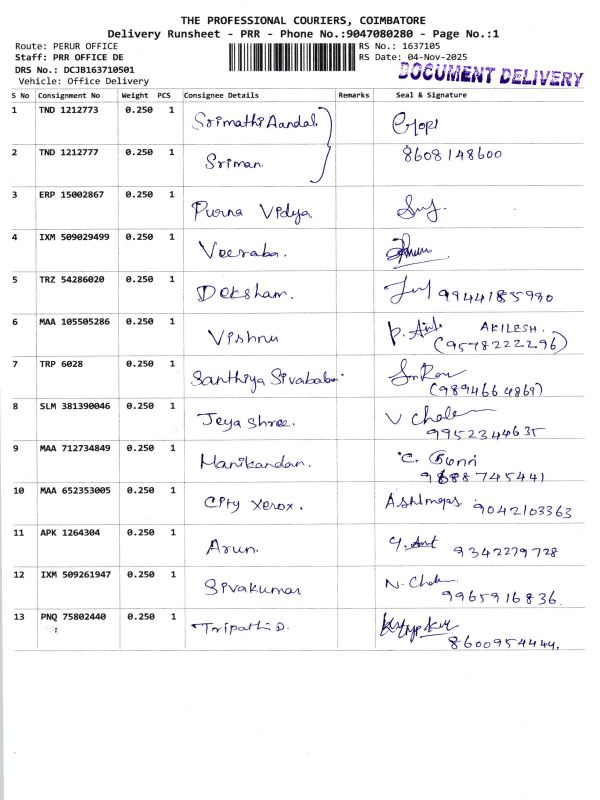 THE PROFESSIONAL COURIERS, COIMBATORE
Delivery Runsheet - PRR - Phone No.:9047080280 - Page No.:1
Route: PERUR OFFICE RS No.: 1637105
Staff: PRR OFFICE DE RS Date: 04-Nov-2025
DRS No.: DCJB163710501 DOCUMENT DELIVERY
Vehicle: Office Delivery
S No Consignment No Weight PCS Consignee Details Remarks Seal & Signature
1 TND 1212773 0.250 1 Srimathi Aandal Gopi
2 TND 1212777 0.250 1 Sriman 8608148600
3 ERP 15002867 0.250 1 Purna Vidya.
4 IXM 509029499 0.250 1 Veeraba.
5 TRZ 54286020 0.250 1 Deksham. 9944185990
6 MAA 105505286 0.250 1 Vishnu AKILESH.
(9578222296)
7 TRP 6028 0.250 1 Santhiya Sivababu
(9894664869)
8 SLM 381390046 0.250 1 Jeya shree.
9952344635
9 MAA 712734849 0.250 1 Manikandan. C.
9688745441
10 MAA 652353005 0.250 1 City Xerox. 9042103363
11 APK 1264304 0.250 1 Arun. 9342279728
12 IXM 509261947 0.250 1 Sivakumar
9965916836.
13 PNQ 75802440 0.250 1 Tripathi D.
8600954444.